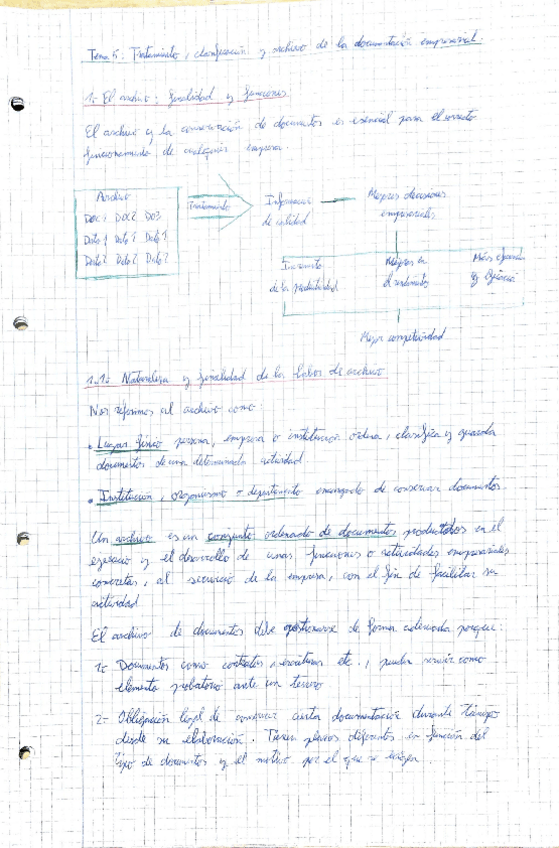 Tema 5: Tratamiento, clasificación y archivo de la documentación empresarial.
1- El archivo: finalidad y funciones
El archivo y la conservación de documentos es esencial para el correcto
funcionamiento de cualquier empresa.
Archivo
Doc 1 Doc 2 Do3
Dato 1 Dato 1 Dato 1
Dato 2 Dato 2 Dato 2
Tratamiento
Información
de calidad
Mejores decisiones
empresariales
Incremento
de la productividad
Mejora en
el rendimiento
Más eficacia
y eficiencia
Mejor competitividad
1.1- Naturaleza y finalidad de la labor de archivo
Nos referimos al archivo como:
• Lugar físico persona, empresa o institución ordena, clasifica y guarda
documentos de una determinada actividad.
• Institución, organismo o departamento encargado de conservar documentos.
Un archivo es un conjunto ordenado de documentos productos en el
ejercicio y el desarrollo de unas funciones o actividades empresariales
concretas, al servicio de la empresa, con el fin de facilitar su
actividad
El archivo de documentos debe gestionarse de forma adecuada porque:
1- Documentos como contratos, escrituras etc., pueda servir como
elemento probatorio ante un tercero
2- Obligación legal de conservar cierta documentación durante tiempo
desde su elaboración. Tienen plazos diferentes en función del
tipo de documentos y el motivo por el que se exigen.